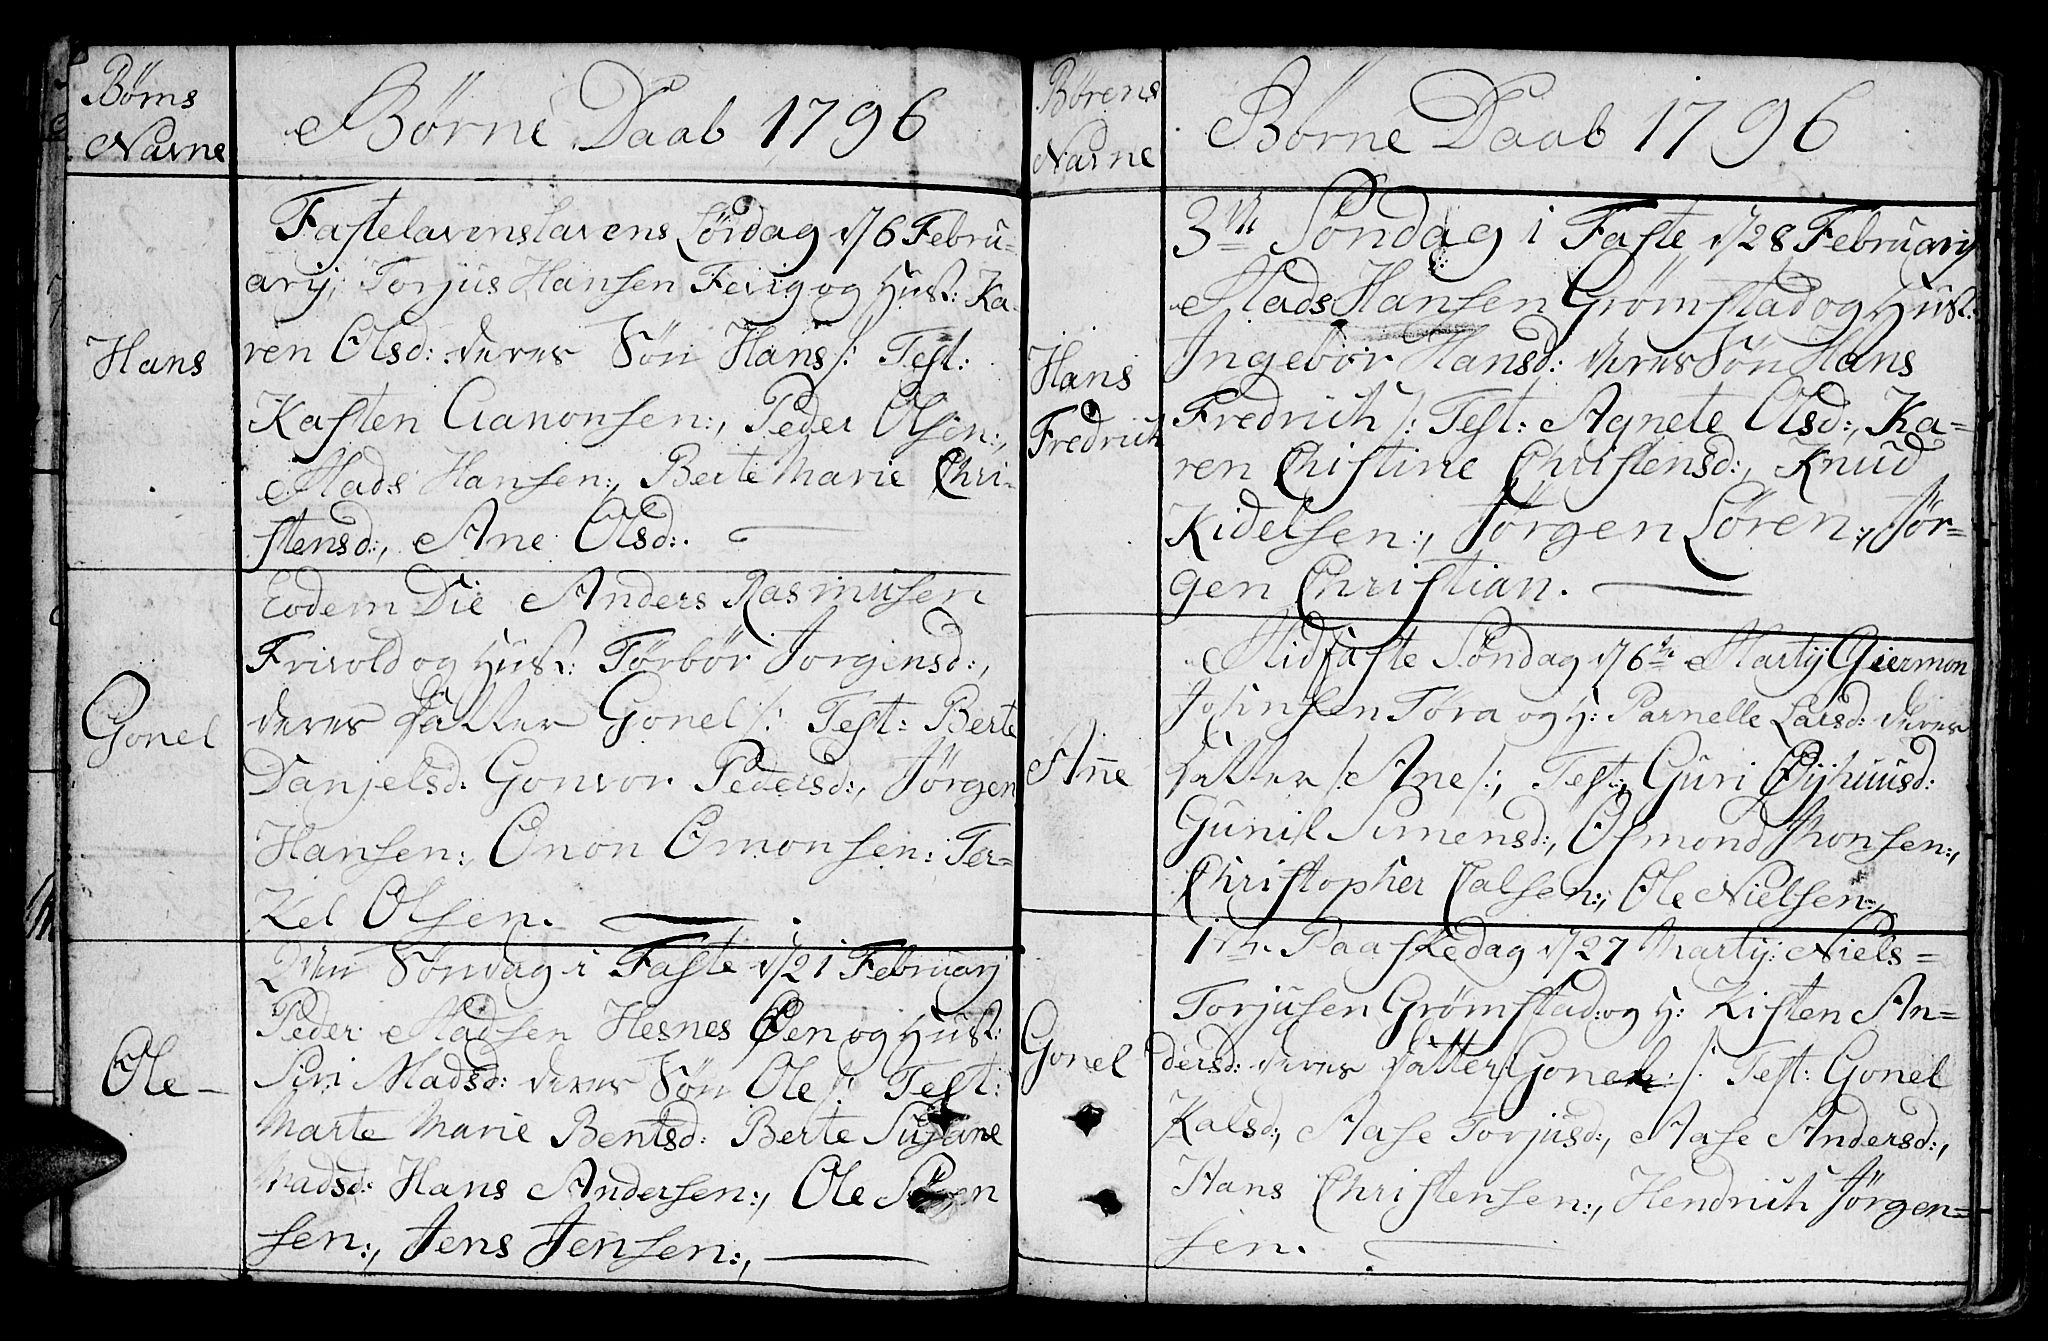 Børns
Navne
Børne Daab 1796
Hans
Fastelavenslavens Lørdag d/6 Febru=
arij, Torjus Hansen Fevig og Hust: Ka-
ren Olsd: deres Søn Hans /: Test:
Kasten Aanonsen:, Peder Olsen:,
Mads Hansen:, Berte Marie Chri-
stensd:, Ane Olsd:.
Gonel
Eodem Die Anders Rasmusen
Frivold og Hust: Tørbør Jorgensd:,
deres Datter Gonel /: Test: Berte
Danjelsd: Gonvor Pedersd:, Jørgen
Hansen:, Onon Omonsen: Ter=
Kel Olsen.
Ole
2den Søndag i Faste d/21 Februarij
Peder Madsen Hesnes Øen og Hust:
Siri Madsd: deres Søn Ole /: Test:
Marte Marie Bentsd: Berte Susane
Madsd: Hans Andersen:, Ole Søren
sen:, Jens Jensen:,
Børens
Navne
Børne Daab 1796
Hans
Fredrich
3die Søndag i Faste d/28 Februarij
Mads Hansen Grømstad og Hust:
Ingebor Hansd: deres Søn Hans
Fredrich /: Test: Agnete Olsd:, Ka=
ren Christine Christensd:, Knud
Kidelsen:, Jørgen Søren:, Jør=
gen Christian.
Ane
Midfaste Søndag d/6te Martij Giermon
Johnsen Tøra og H: Parnelle Larsd: deres
Datter /: Ane /:, Test:, Guri
Gunil Simensd:, Osmond Thonsen:,
Christopher Calsen:, Ole Nielsen:,
Gonel
1ste Paaskedag d/27 Martij: Niels=
Torjusen Grømstad: og H: Kisten An=
dersd: deres Datter /: Gonel /: Test: Gonel
Kalsd:, Aase Torjusd:, Aase Andersd:,
Hans Christensen:, Hendrich Jørgen=
sen.